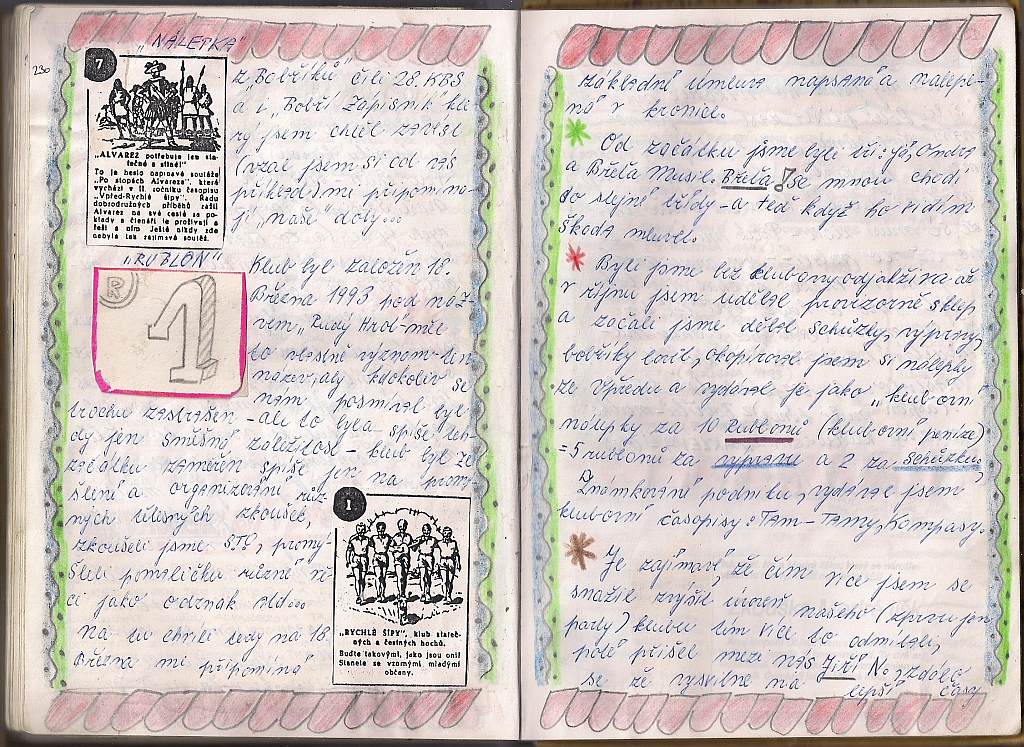 230
„NÁLEPKA"
7
„ALVAREZ potřebuje jen sta-
tečné a silné!"
To je heslo napínavé soutěže
„Po stopách Alvareze", která
vychází v II. ročníku časopisu
„Vpřed-Rychlé šípy". Řadu
dobrodružných příběhů zažil
Alvarez na své cestě za po-
klady a čtenáři je prožívají a
řeší s ním. Ještě nikdy zde
nebyla tak zajímavá soutěž.
z „Bobříků" čili 28. KBS
a i „Bobří Zápisník kte-
rý jsem chtěl zavést
(vzal jsem si od vás
příklad) mi připomína-
jí „naše" doby...
„RUBLON"
R
1
Klub byl založen 18.
Března 1993 pod náz-
vem „Rudý Hrob" měl
to vlastně význam ten
název, aby kdokoliv se
nám posmíval byl
trochu zastrašen - ale to byla spíše teh-
dy jen směšná záležitost - klub byl ze
začátku zaměřen spíše jen na promý-
šlení a organizování růz-
ných tělesných zkoušek,
zkoušeli jsme STG, promý-
šleli pomaličku různé vě-
ci jako odznak atd...
na tu chvíli tedy na 18.
Března mi připomíná
1
„RYCHLÉ ŠÍPY", klub stateč-
ných a čestných hochů.
Buďte takovými, jako jsou oni!
Stanete se vzornými mladými
občany.
základní úmluva napsaná a nalepe-
ná v kronice.
Od začátku jsme byli tři: Já, Ondra
a Břeťa Musil. Břeťa se mnou chodí
do stejné třídy - a teď když ho vidím
škoda mluvit.
Byli jsme bez klubovny odjakživa až
v říjnu jsem udělal provizorně sklep
a začali jsme dělat schůzky, výpravy,
bobříky lovit, okopíroval jsem si nálepky
ze Vpředu a vydával je jako „klubovní
nálepky za 10 Rublonů (klubovní peníze)
=5 rublonů za výpravu a 2 za schůzku,
Známkování podniku, vydával jsem
klubovní časopisy: TAM-TAMY, Kompasy.
Je zajímavé, že čím více jsem se
snažil zvýšit úroveň našeho (zprvu jen
party) klubu tím více to odmítali,
poté přišel mezi nás Jiří. No zdálo
se že vysvitne na lepší časy